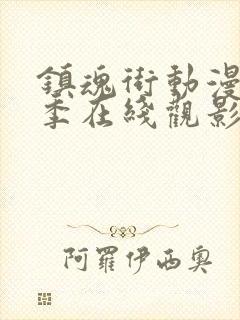 鎮魂街動漫
季在綫觀影
阿羅伊西奧